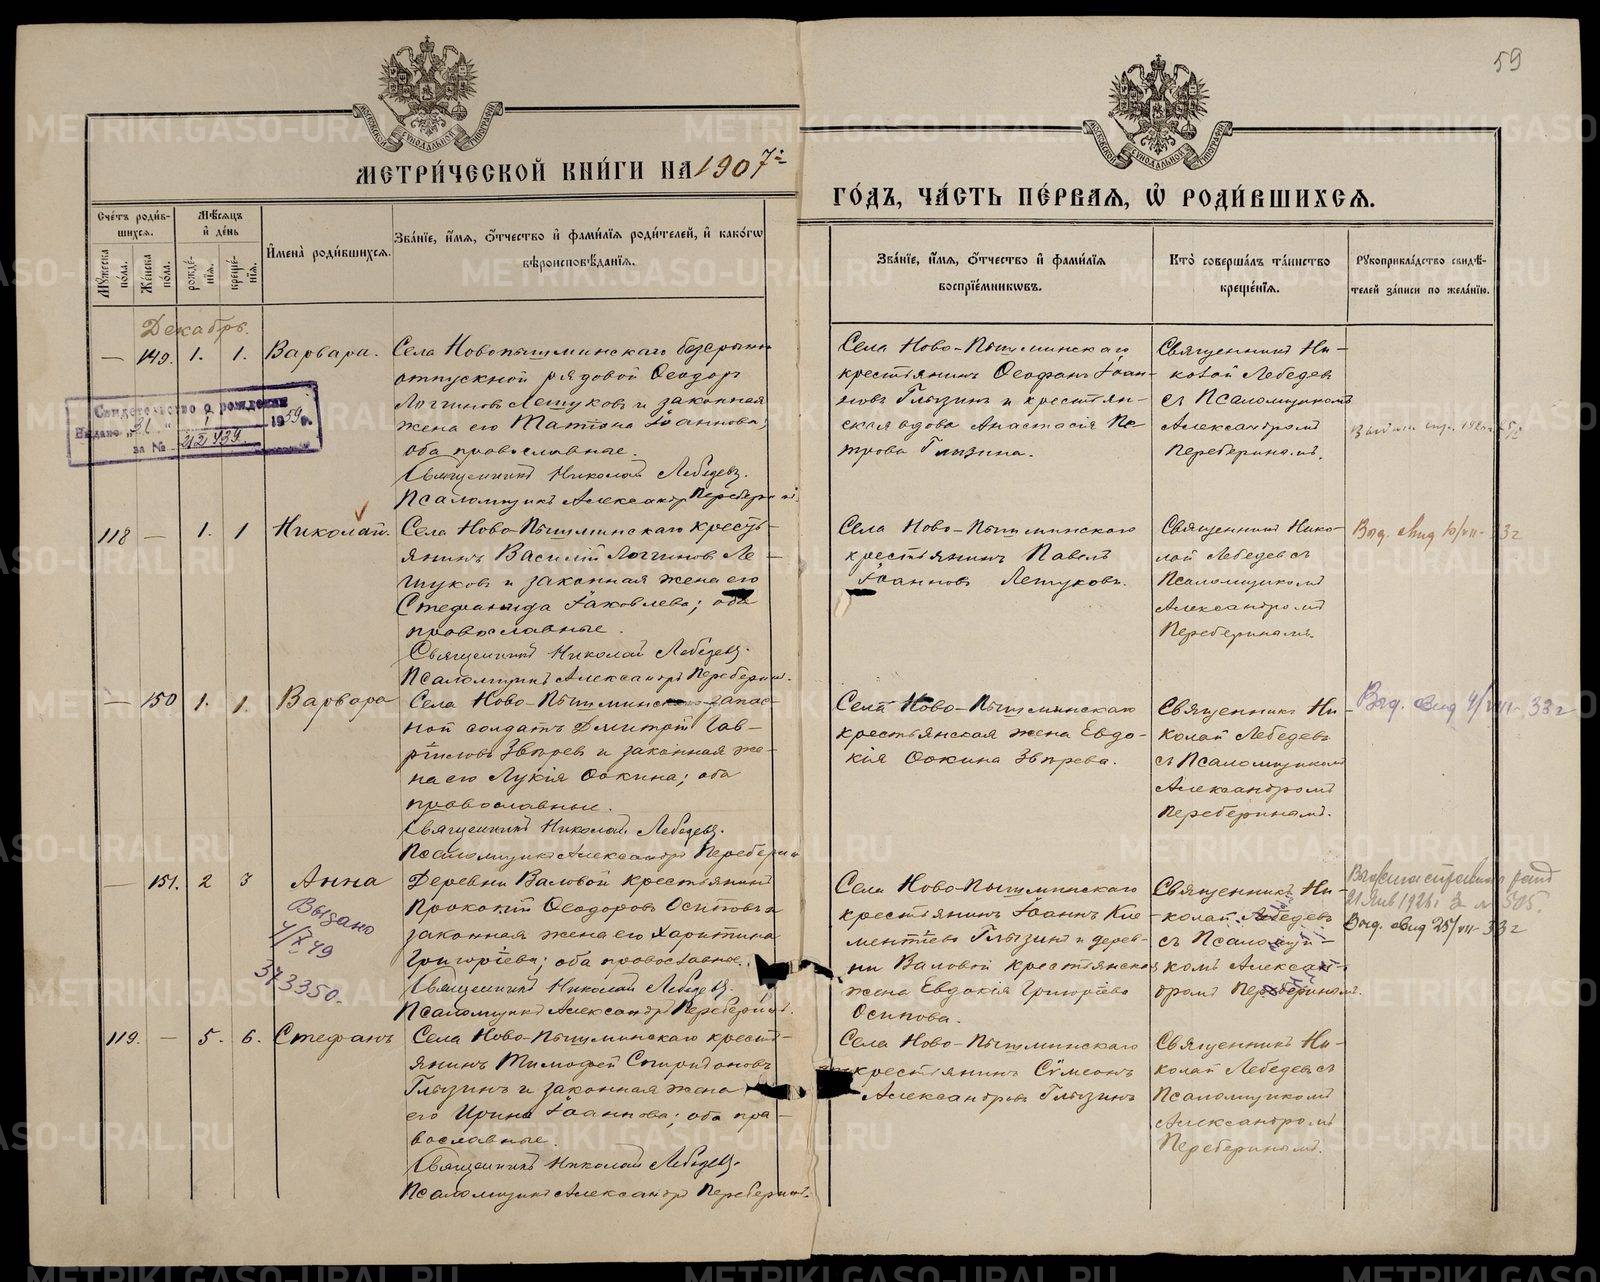 59
МЕТРИ́ЧЕСКОЙ КНИ́ГИ НА 1907
ГО́ДЪ, ЧА́СТЬ ПЕ́РВАЯ, Ѽ РОДИ́ВШИХСЯ.
Сче́тъ роди́в-
шихся.
Му́жеска по́ла.
Же́нска по́ла.
Мѣ́сяцъ
и҆ де́нь
рожде́-
нїя.
креще́-
нїя.
И҆мена̀ роди́вшихся.
Зва́нїе, и҆́мя, ѻ҆́тчество и҆ фами́лїя роди́телей, и҆ како́гѡ
вѣроисповѣ́данїя.
Зва́нїе, и҆́мя, ѻ҆́тчество и҆ фами́лїя
воспрїе́мникѡвъ.
Кто̀ соверша́лъ та́инство
креще́нїя.
Рукоприкла́дство свидѣ́-
телей за́писи по жела́нїю.
Декабрь.
— 149. 1. 1. Варвара.
Села Новопышминскаго
отпускной рядовой Ѳеодоръ
Логгиновъ Летуковъ и законная
жена его Татіана Іоаннова;
оба православные.
Священникъ Николай Лебедевъ.
Псаломщикъ Александръ Переберинъ
Села Ново-Пышминскаго
крестьянинъ Ѳеофанъ Іоан-
новъ Глызинъ и крестьян-
ская вдова Анастасія Пе-
трова Глызина.
Священникъ Ни-
колай Лебедевъ
съ Псаломщикомъ
Александромъ
Переберинымъ.
Свидетельство о рождении
Выдано „31“ 1 1959 г.
за №
118 — 1. 1 Николай.
Села Ново-Пышминскаго кресть-
янинъ Василій Логгиновъ Ле-
туковъ и законная жена его
Стефанида Іаковлева; оба
православные.
Священникъ Николай Лебедевъ.
Псаломщикъ Александръ Переберинъ.
Села Ново-Пышминскаго
крестьянинъ Павелъ
Іоанновъ Летуковъ.
Священникъ Нико-
лай Лебедевъ съ
Псаломщикомъ
Александромъ
Переберинымъ.
Выд. свид 10/VII-33 г
— 150 1. 1. Варвара
Села Ново-Пышминскаго запас-
ной солдатъ Дмитрій Гав-
ріиловъ Звѣревъ и законная же-
на его Лукія Ѳокина; оба
православные.
Священникъ Николай Лебедевъ.
Псаломщикъ Александръ Переберинъ
Села Ново-Пышминскаго
крестьянская жена Евдо-
кія Ѳокина Звѣрева.
Священникъ Ни-
колай Лебедевъ
съ Псаломщикомъ
Александромъ
Переберинымъ.
Выд. свид 4/VIII-33 г
— 151. 2 3 Анна
Выдано
373350.
Деревни Валовой крестьянинъ
Прокопій Ѳеодоровъ Осиповъ и
законная жена его Харитина
Григоріева; оба православные.
Священникъ Николай Лебедевъ.
Псаломщикъ Александръ Переберинъ.
Села Ново-Пышминскаго
крестьянинъ Іоаннъ Кле-
ментіевъ Глызинъ и дерев-
ни Валовой крестьянская
жена Евдокія Григоріева
Осипова.
Священникъ Ни-
колай Лебедевъ
съ Псаломщи-
комъ Алексан-
дромъ Переберинымъ.
505.
Выд. свид 25/VII-33 г
119. — 5. 6. Стефанъ
Села Ново-Пышминскаго кресть-
янинъ Тимофей Спиридоновъ
Глызинъ и законная жена
его Ирина Іоаннова; оба пра-
вославные.
Священникъ Николай Лебедевъ.
Псаломщикъ Александръ Переберинъ.
Села Ново-Пышминскаго
крестьянинъ Сѵмеонъ
Александровъ Глызинъ
Священникъ Ни-
колай Лебедевъ съ
Псаломщикомъ
Александромъ
Переберинымъ.
METRIKI.GASO-URAL.RU